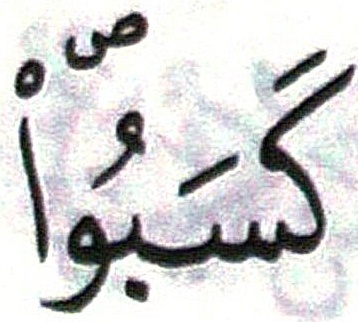 كَسَبُوا۟ ۖ ص